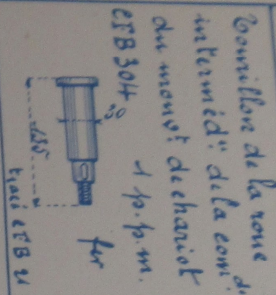 Tourillon de la roue
interméd.re de la com.de
du mouv.t du chariot
CFB 304 1 p.p.m.
30
135
fer
tracé CFB 21